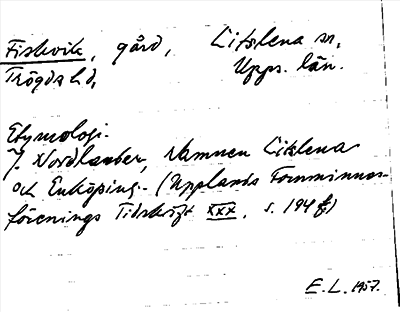 Fiskvik, gård, Litslena sn,
Trögds hd, Upps. län.
Etymologi.
J. Nordlander, Namnen Litslena
och Enköping. (Upplands Fornminnes-
förenings Tidskrift XXX, s. 194 f)
E. L. 1957.